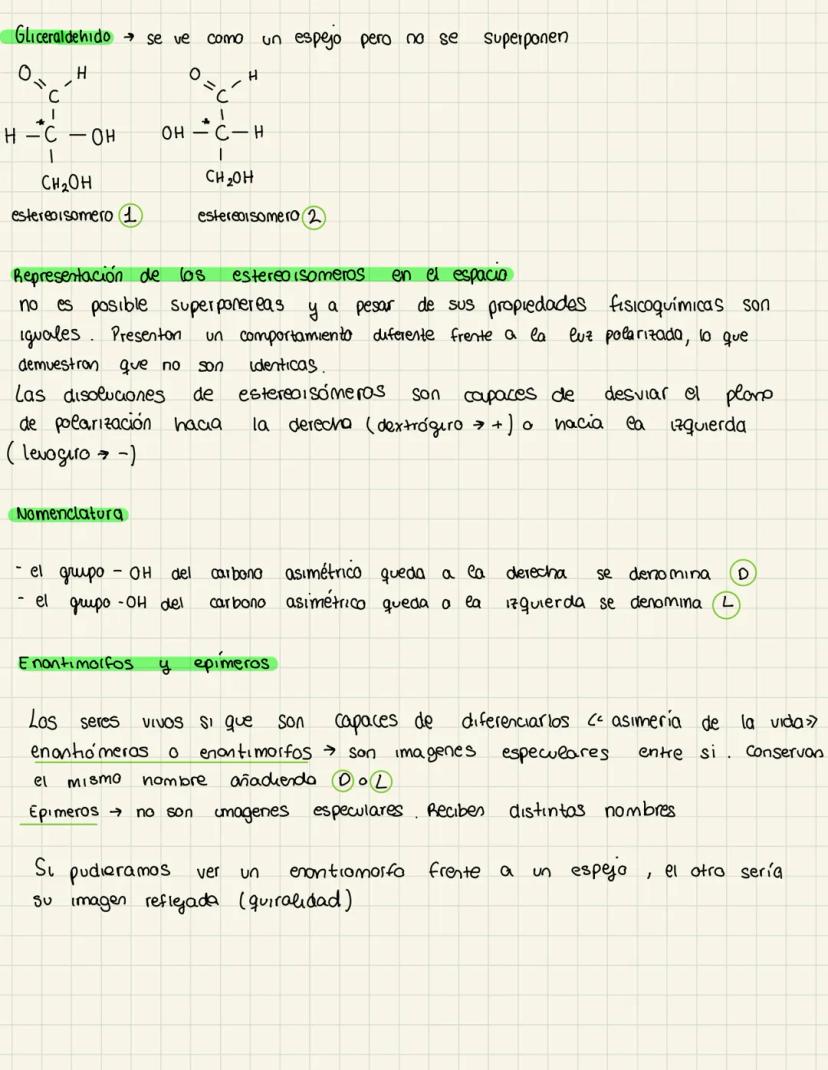 Gliceraldehido → se ve como un espejo pero no se superponen
O H O H
C C
H - C* - OH OH - C* - H
CH₂OH CH₂OH
estereoisomero 1 estereoisomero 2
Representación de los estereoisomeros en el espacio
no es posible superponereas y a pesar de sus propiedades fisicoquímicas son
iguales. Presentan un comportamiento diferente frente a la luz polarizada, lo que
demuestran que no son identicas.
Las disoluciones de estereoisómeros son capaces de desviar el plano
de polarización hacia la derecha (dextrógiro → +) o hacia la izquierda
(levogiro → -)
Nomenclatura
- el grupo - OH del carbono asimétrico queda a la derecha se denomina D
- el grupo -OH del carbono asimétrico queda a la izquierda se denomina L
Enantimorfos y epímeros
Los seres vivos si que son capaces de diferenciarlos << asimeria de la vida>>
enantiómeros o enantimorfos → son imagenes especulares entre si. Conservan
el mismo nombre añadiendo D o L
Epimeros → no son imagenes especulares. Reciben distintos nombres
Si pudieramos ver un enantiomorfo frente a un espejo, el otro sería
su imagen reflejada (quiralidad)